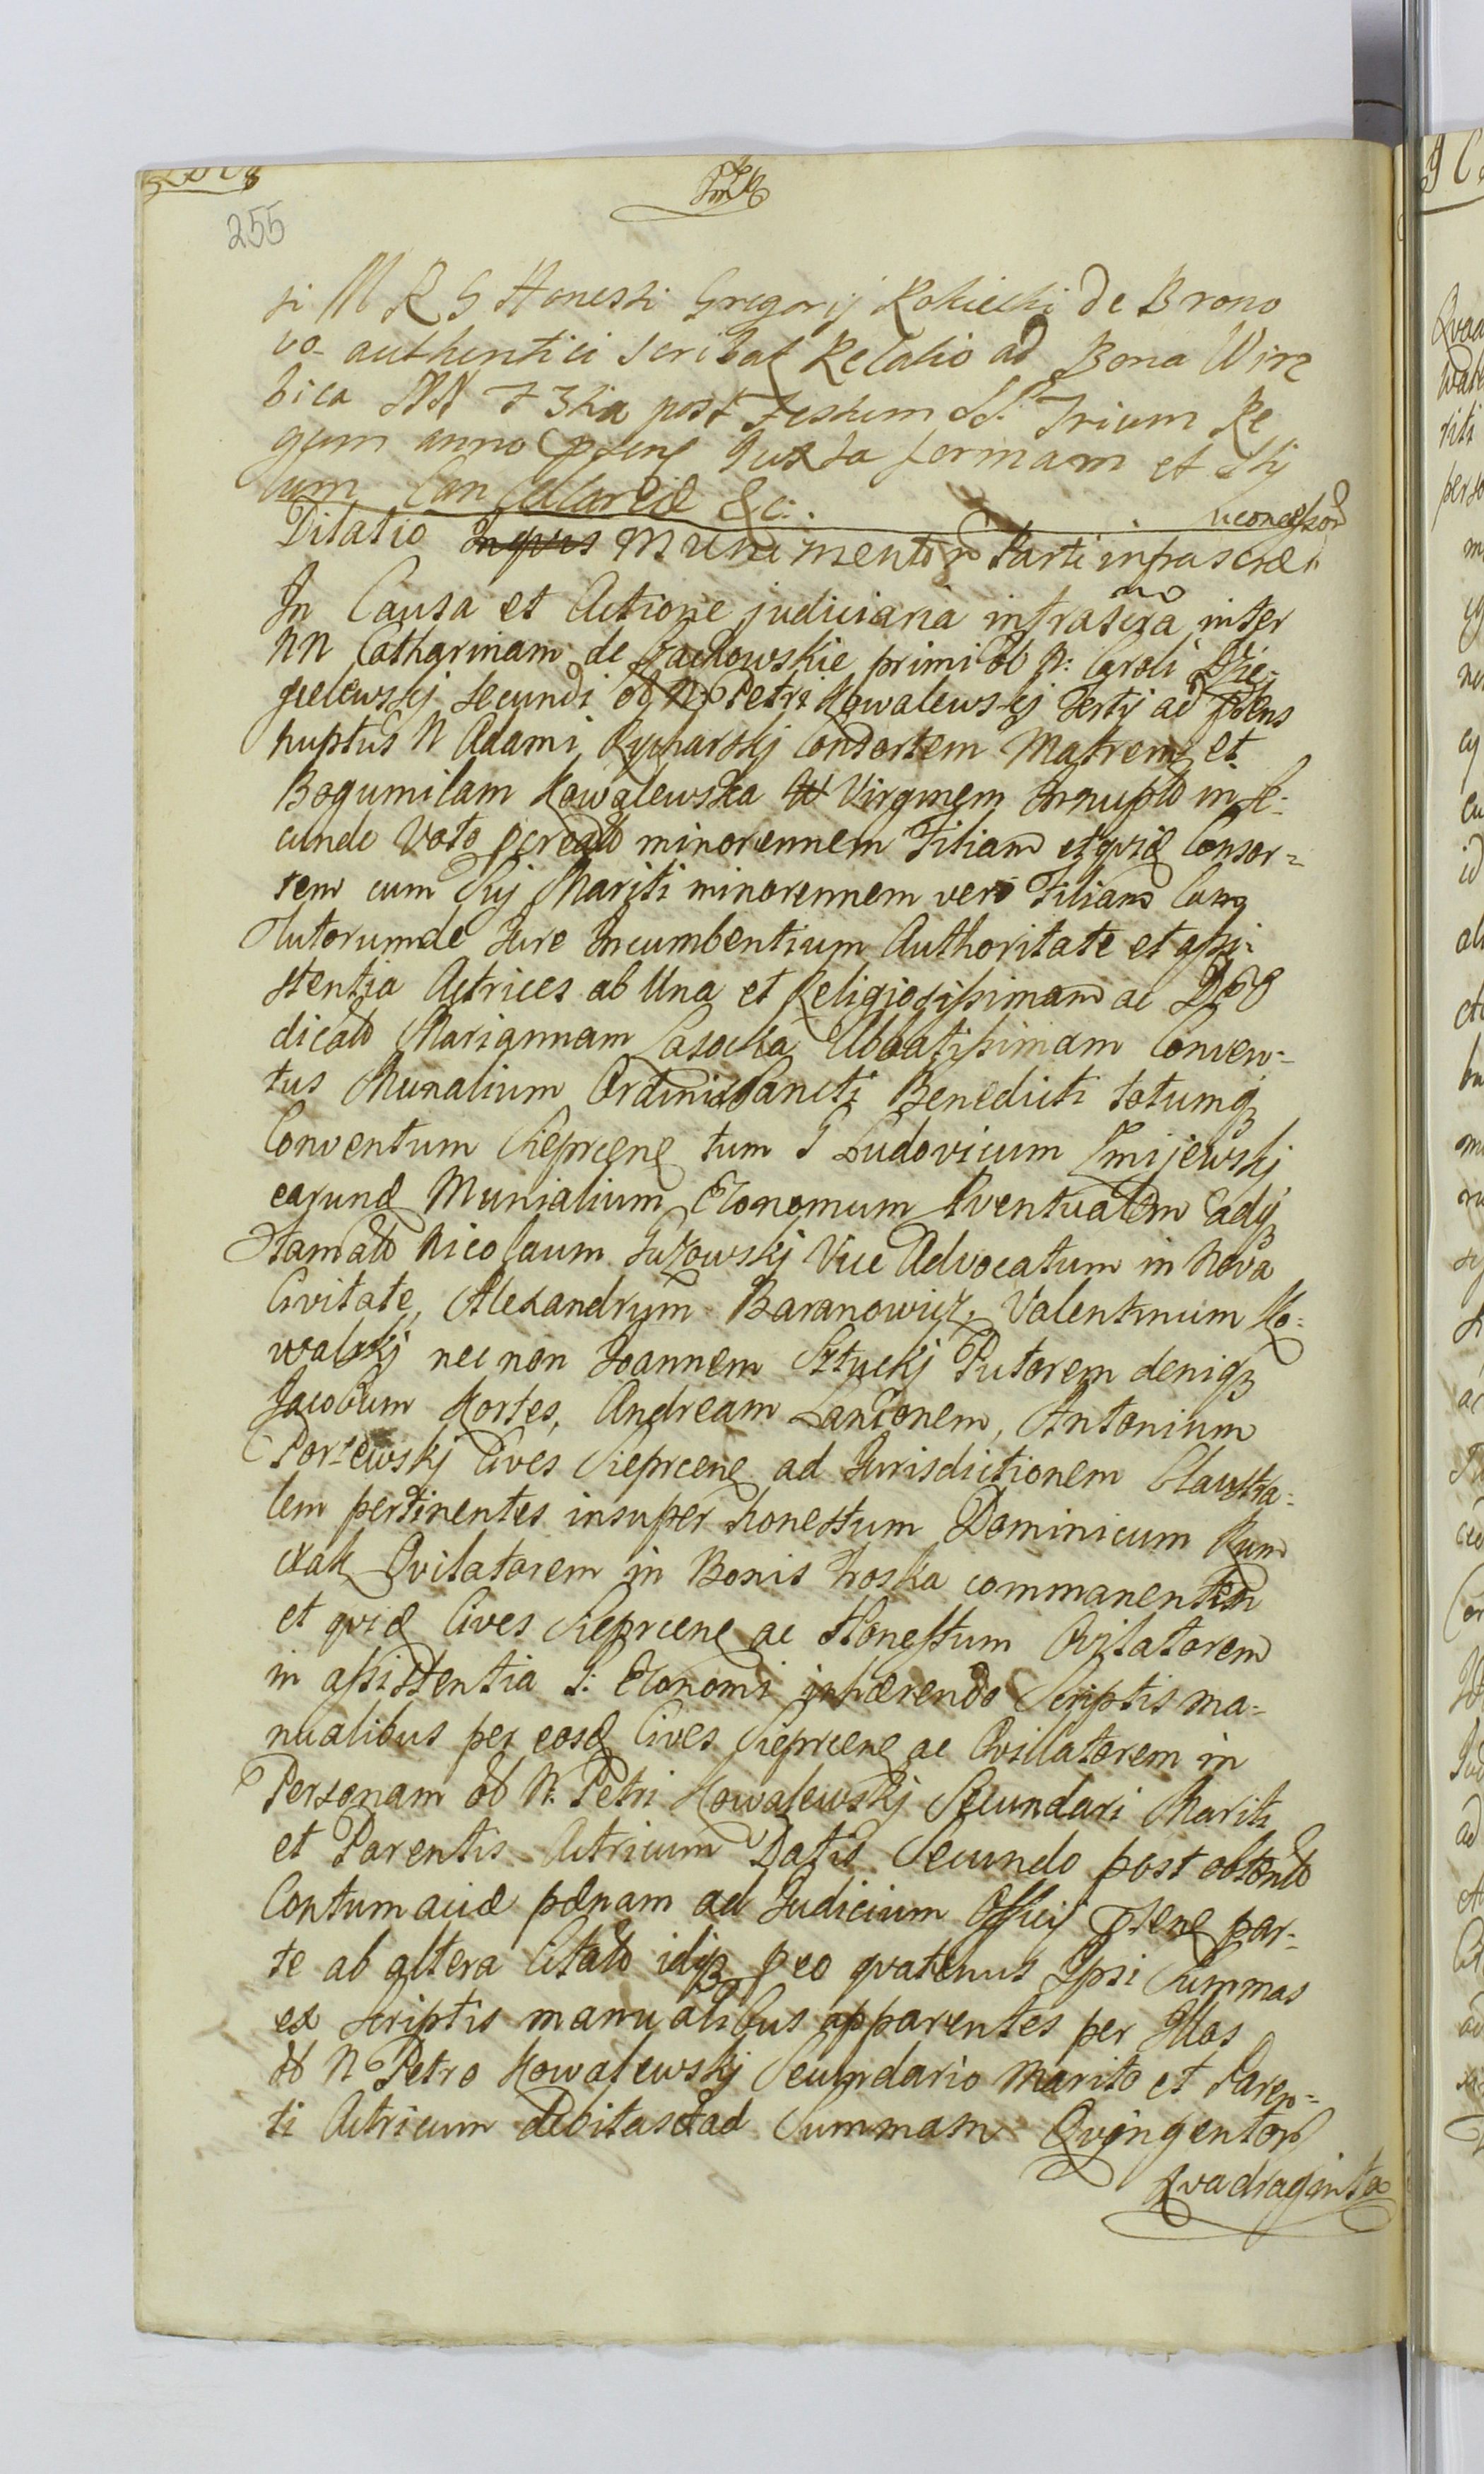 255
ti M R G Honesti Gregorij Rokicki de Brono
vo authentici scribat Relatio ad Bona Wirz
bica NN F 3tia post Festum SS. Trium Re
gum anno pesens Juxta formam et Sty
lum Cancellareiæ &c:
Dilatio Munimentor Parti infrascræ concess
In Causa et Actione judiciaria infrascra inter
NN Catharinam de primi ol N: Caroli Dzie-
gielewskj secundi ol N Petri Kowalewskj Tertij ad psens
nuptus N Adami Rycharskj Consortem Matrem et
Bogumilam Kowalewska Virginem Innupto in se-
cundo Voto pcreato minorennem Filiam et qvid Consor-
tem cum Suj Mariti minorennem vero Filiam Cum
Tutorum de Jure Incumbentium Authoritate et assi-
stentia Actrices ab Una et Religiosissimam ac DEO
dicato Mariannam Lasocka Abbatissimam Conven-
tus Munalium Ordinis Sancti Benedicti totumq
Conventum Sieprcens tum G Ludovicum Zmijewskj
earund Munialium Economum Eventualem Cady
Famato Nicolaum Guzowskj Vice Advocatum in Nova
Civitate, Alexandrum Baranowicz, Valentinum Ko-
walskj nec non Joannem Sztuckj Tutorem deniq
Jacobum Kortes, Andream Lanionem, Antonium
Porzewskj Cives Sieprcens ad Jurisdictionem Claustra-
lem pertinentes insuper honestum Dominicum Kum
czak Ovilatorem in Bonis Troska commanentem
et qvid Cives Sieprcens ac Honestum Ovilatorem
in assistentia S: Economi inhærendo Scriptis ma-
nualibus per eosd Cives Sieprcens ac Ovillatorem in
Personam ol N. Petri Kowalewskj Secundari Mariti
et Parentis Actricum Datis Secundo post obtento
Contumaciæ pænam ad Judicium Officij psens par-
te ab altera Citato idq peo qvatenus Ipsi Summas
ex Scriptis manualibus apparentes per Illos
ol N Petro Kowalewskj Secundario Marito et Paren-
ti Actricum debitas et ad Summam Qvingentor
Qvadraginta